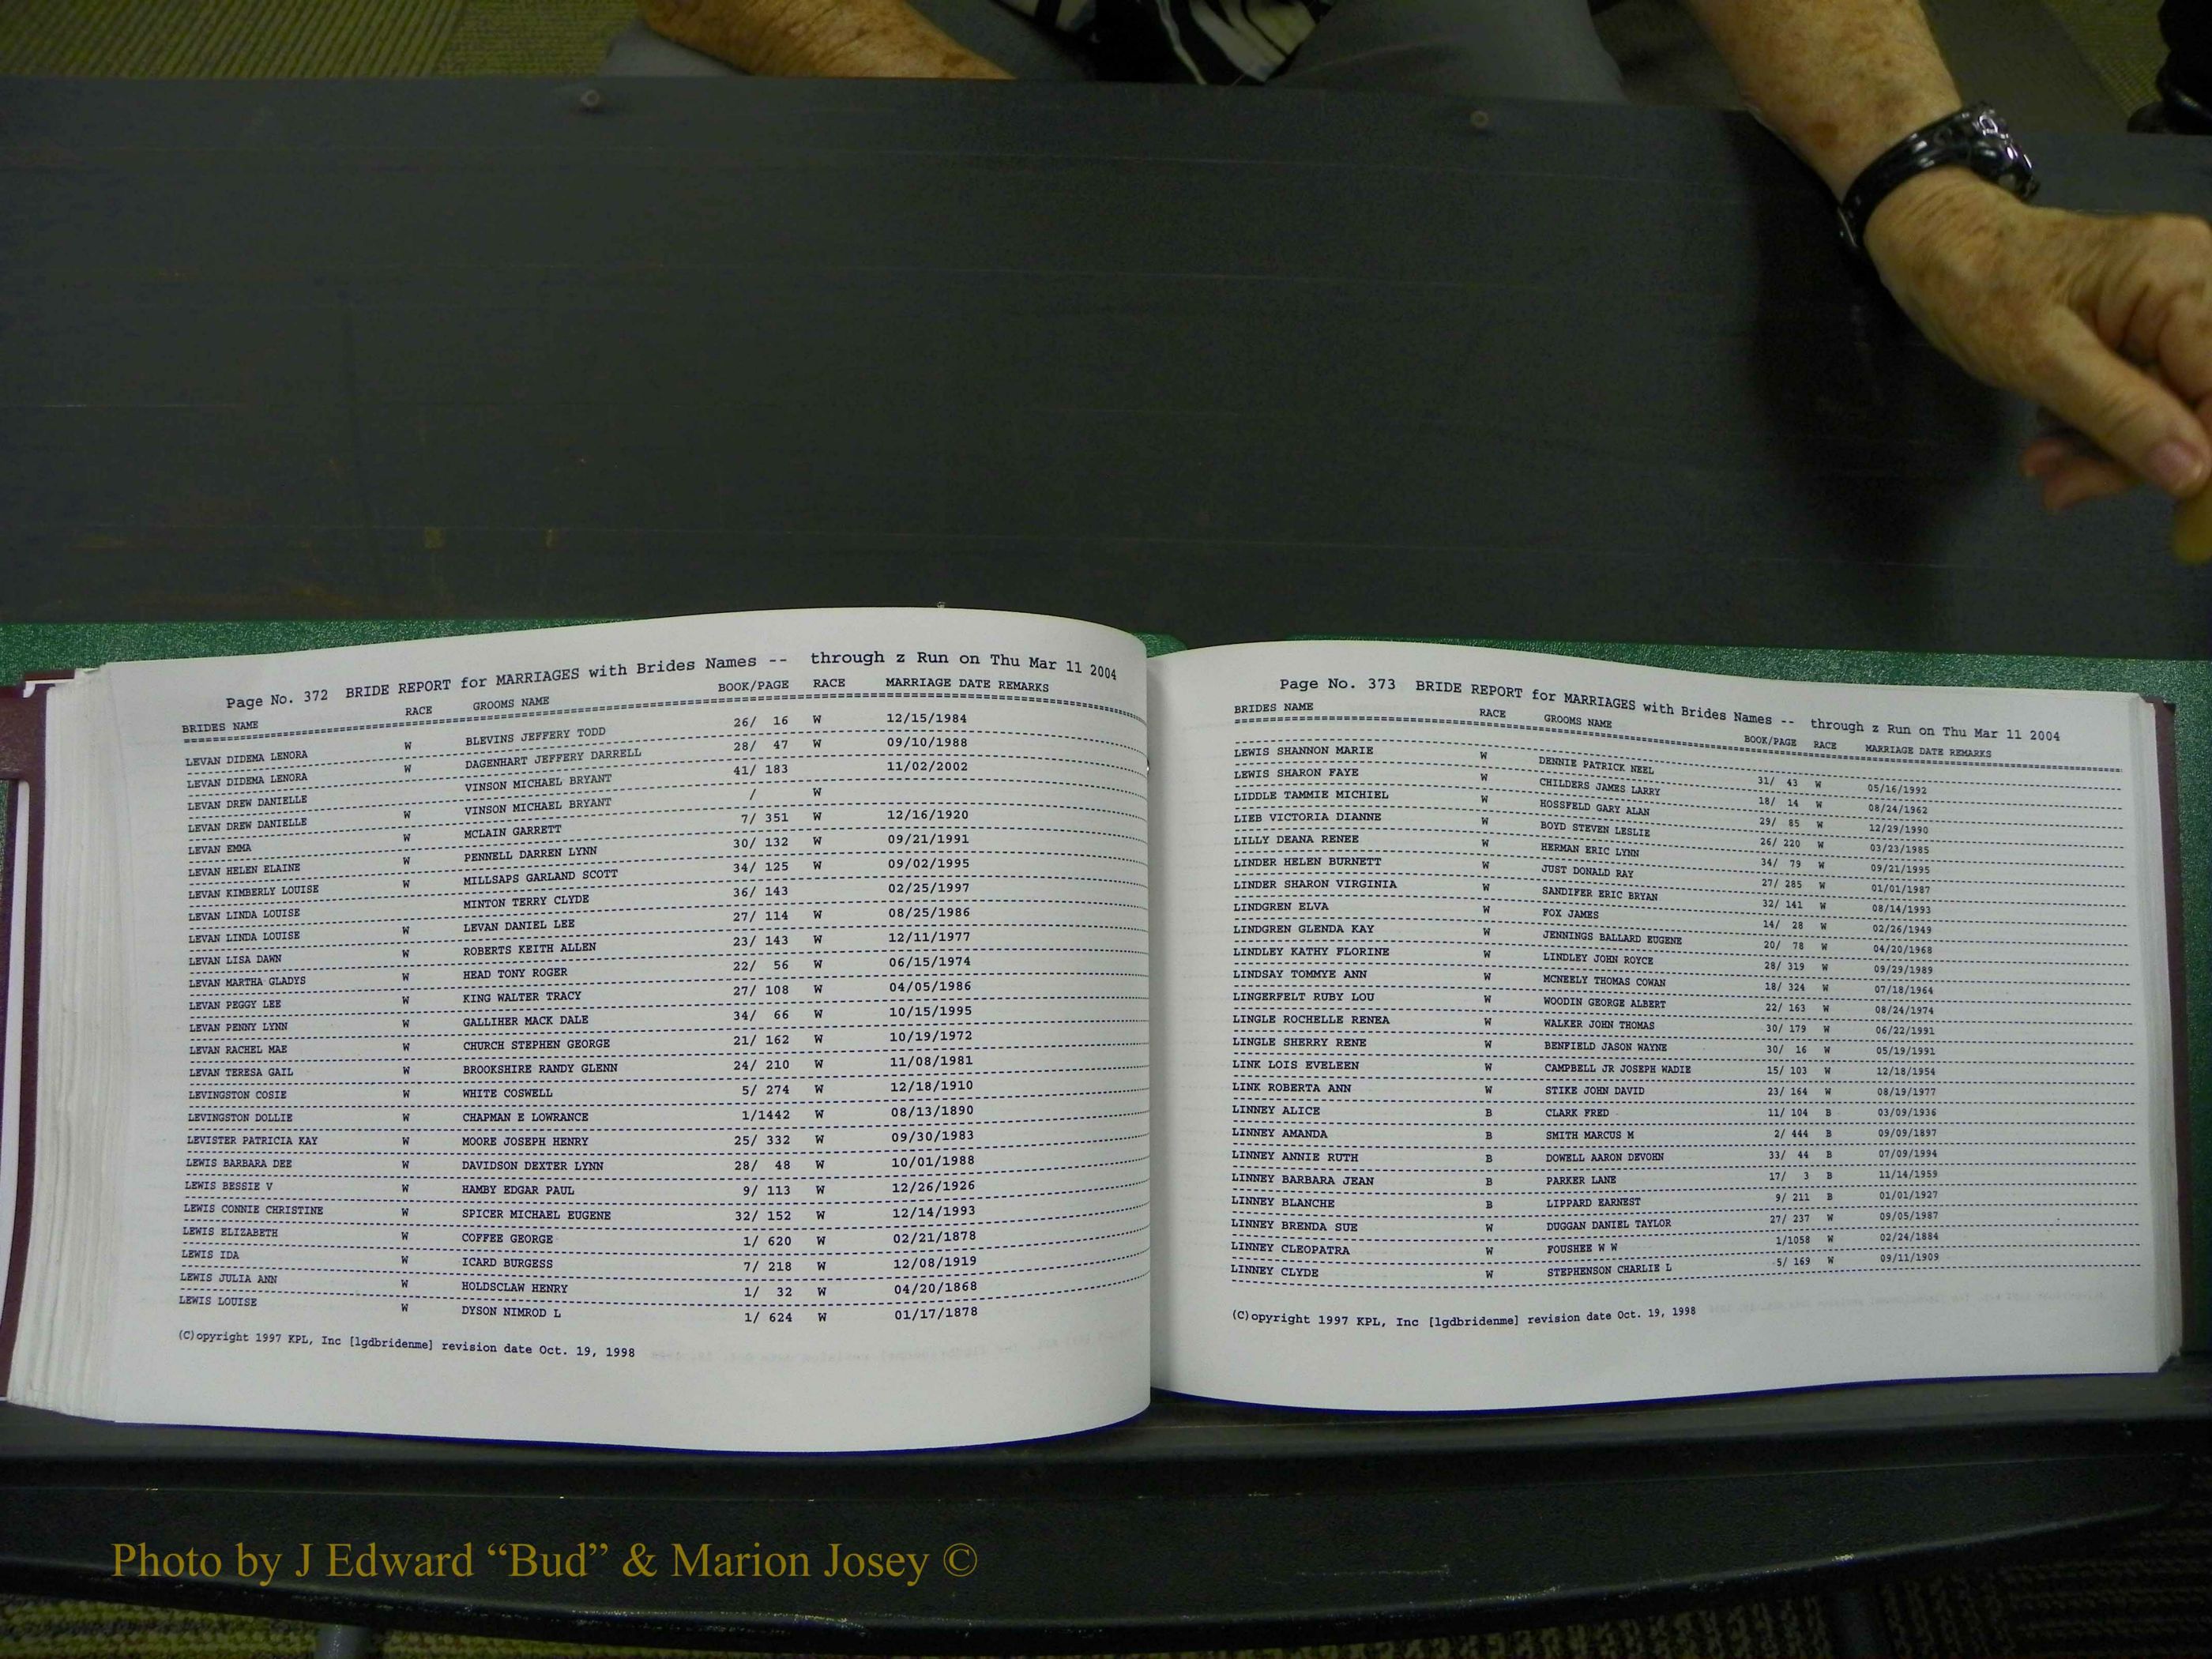 Page No. 372 BRIDE REPORT for MARRIAGES with Brides Names -- through z Run on Thu Mar 11 2004
BRIDES NAME RACE GROOMS NAME BOOK/PAGE RACE MARRIAGE DATE REMARKS
LEVAN DIDEMA LENORA W BLEVINS JEFFERY TODD 26/ 16 W 12/15/1984
LEVAN DIDEMA LENORA W DAGENHART JEFFERY DARRELL 28/ 47 W 09/10/1988
LEVAN DREW DANIELLE VINSON MICHAEL BRYANT 41/ 183 11/02/2002
LEVAN DREW DANIELLE W VINSON MICHAEL BRYANT / W
LEVAN EMMA W MCLAIN GARRETT 7/ 351 W 12/16/1920
LEVAN HELEN ELAINE W PENNELL DARREN LYNN 30/ 132 W 09/21/1991
LEVAN KIMBERLY LOUISE W MILLSAPS GARLAND SCOTT 34/ 125 W 09/02/1995
LEVAN LINDA LOUISE MINTON TERRY CLYDE 36/ 143 02/25/1997
LEVAN LINDA LOUISE W LEVAN DANIEL LEE 27/ 114 W 08/25/1986
LEVAN LISA DAWN W ROBERTS KEITH ALLEN 23/ 143 W 12/11/1977
LEVAN MARTHA GLADYS W HEAD TONY ROGER 22/ 56 W 06/15/1974
LEVAN PEGGY LEE W KING WALTER TRACY 27/ 108 W 04/05/1986
LEVAN PENNY LYNN W GALLIHER MACK DALE 34/ 66 W 10/15/1995
LEVAN RACHEL MAE W CHURCH STEPHEN GEORGE 21/ 162 W 10/19/1972
LEVAN TERESA GAIL W BROOKSHIRE RANDY GLENN 24/ 210 W 11/08/1981
LEVINGSTON COSIE W WHITE COSWELL 5/ 274 W 12/18/1910
LEVINGSTON DOLLIE W CHAPMAN E LOWRANCE 1/1442 W 08/13/1890
LEVISTER PATRICIA KAY W MOORE JOSEPH HENRY 25/ 332 W 09/30/1983
LEWIS BARBARA DEE W DAVIDSON DEXTER LYNN 28/ 48 W 10/01/1988
LEWIS BESSIE V W HAMBY EDGAR PAUL 9/ 113 W 12/26/1926
LEWIS CONNIE CHRISTINE W SPICER MICHAEL EUGENE 32/ 152 W 12/14/1993
LEWIS ELIZABETH W COFFEE GEORGE 1/ 620 W 02/21/1878
LEWIS IDA W ICARD BURGESS 7/ 218 W 12/08/1919
LEWIS JULIA ANN W HOLDSCLAW HENRY 1/ 32 W 04/20/1868
LEWIS LOUISE W DYSON NIMROD L 1/ 624 W 01/17/1878
(C)opyright 1997 KPL, Inc [lgdbridenme] revision date Oct. 19, 1998
Page No. 373 BRIDE REPORT for MARRIAGES with Brides Names -- through z Run on Thu Mar 11 2004
BRIDES NAME RACE GROOMS NAME BOOK/PAGE RACE MARRIAGE DATE REMARKS
LEWIS SHANNON MARIE W DENNIE PATRICK NEEL 31/ 43 W 05/16/1992
LEWIS SHARON FAYE W CHILDERS JAMES LARRY 18/ 14 W 08/24/1962
LIDDLE TAMMIE MICHIEL W HOSSFELD GARY ALAN 29/ 85 W 12/29/1990
LIEB VICTORIA DIANNE W BOYD STEVEN LESLIE 26/ 220 W 03/23/1985
LILLY DEANA RENEE W HERMAN ERIC LYNN 34/ 79 W 09/21/1995
LINDER HELEN BURNETT W JUST DONALD RAY 27/ 285 W 01/01/1987
LINDER SHARON VIRGINIA W SANDIFER ERIC BRYAN 32/ 141 W 08/14/1993
LINDGREN ELVA W FOX JAMES 14/ 28 W 02/26/1949
LINDGREN GLENDA KAY W JENNINGS BALLARD EUGENE 20/ 78 W 04/20/1968
LINDLEY KATHY FLORINE W LINDLEY JOHN ROYCE 28/ 319 W 09/29/1989
LINDSAY TOMMYE ANN W MCNEELY THOMAS COWAN 18/ 324 W 07/18/1964
LINGERFELT RUBY LOU W WOODIN GEORGE ALBERT 22/ 163 W 08/24/1974
LINGLE ROCHELLE RENEA W WALKER JOHN THOMAS 30/ 179 W 06/22/1991
LINGLE SHERRY RENE W BENFIELD JASON WAYNE 30/ 16 W 05/19/1991
LINK LOIS EVELEEN W CAMPBELL JR JOSEPH WADIE 15/ 103 W 12/18/1954
LINK ROBERTA ANN W STIKE JOHN DAVID 23/ 164 W 08/19/1977
LINNEY ALICE B CLARK FRED 11/ 104 B 03/09/1936
LINNEY AMANDA B SMITH MARCUS M 2/ 444 B 09/09/1897
LINNEY ANNIE RUTH B DOWELL AARON DEVOHN 33/ 44 B 07/09/1994
LINNEY BARBARA JEAN B PARKER LANE 17/ 3 B 11/14/1959
LINNEY BLANCHE B LIPPARD EARNEST 9/ 211 B 01/01/1927
LINNEY BRENDA SUE W DUGGAN DANIEL TAYLOR 27/ 237 W 09/05/1987
LINNEY CLEOPATRA W FOUSHEE W W 1/1058 W 02/24/1884
LINNEY CLYDE W STEPHENSON CHARLIE L 5/ 169 W 09/11/1909
(C)opyright 1997 KPL, Inc [lgdbridenme] revision date Oct. 19, 1998
Photo by J Edward “Bud” & Marion Josey ©